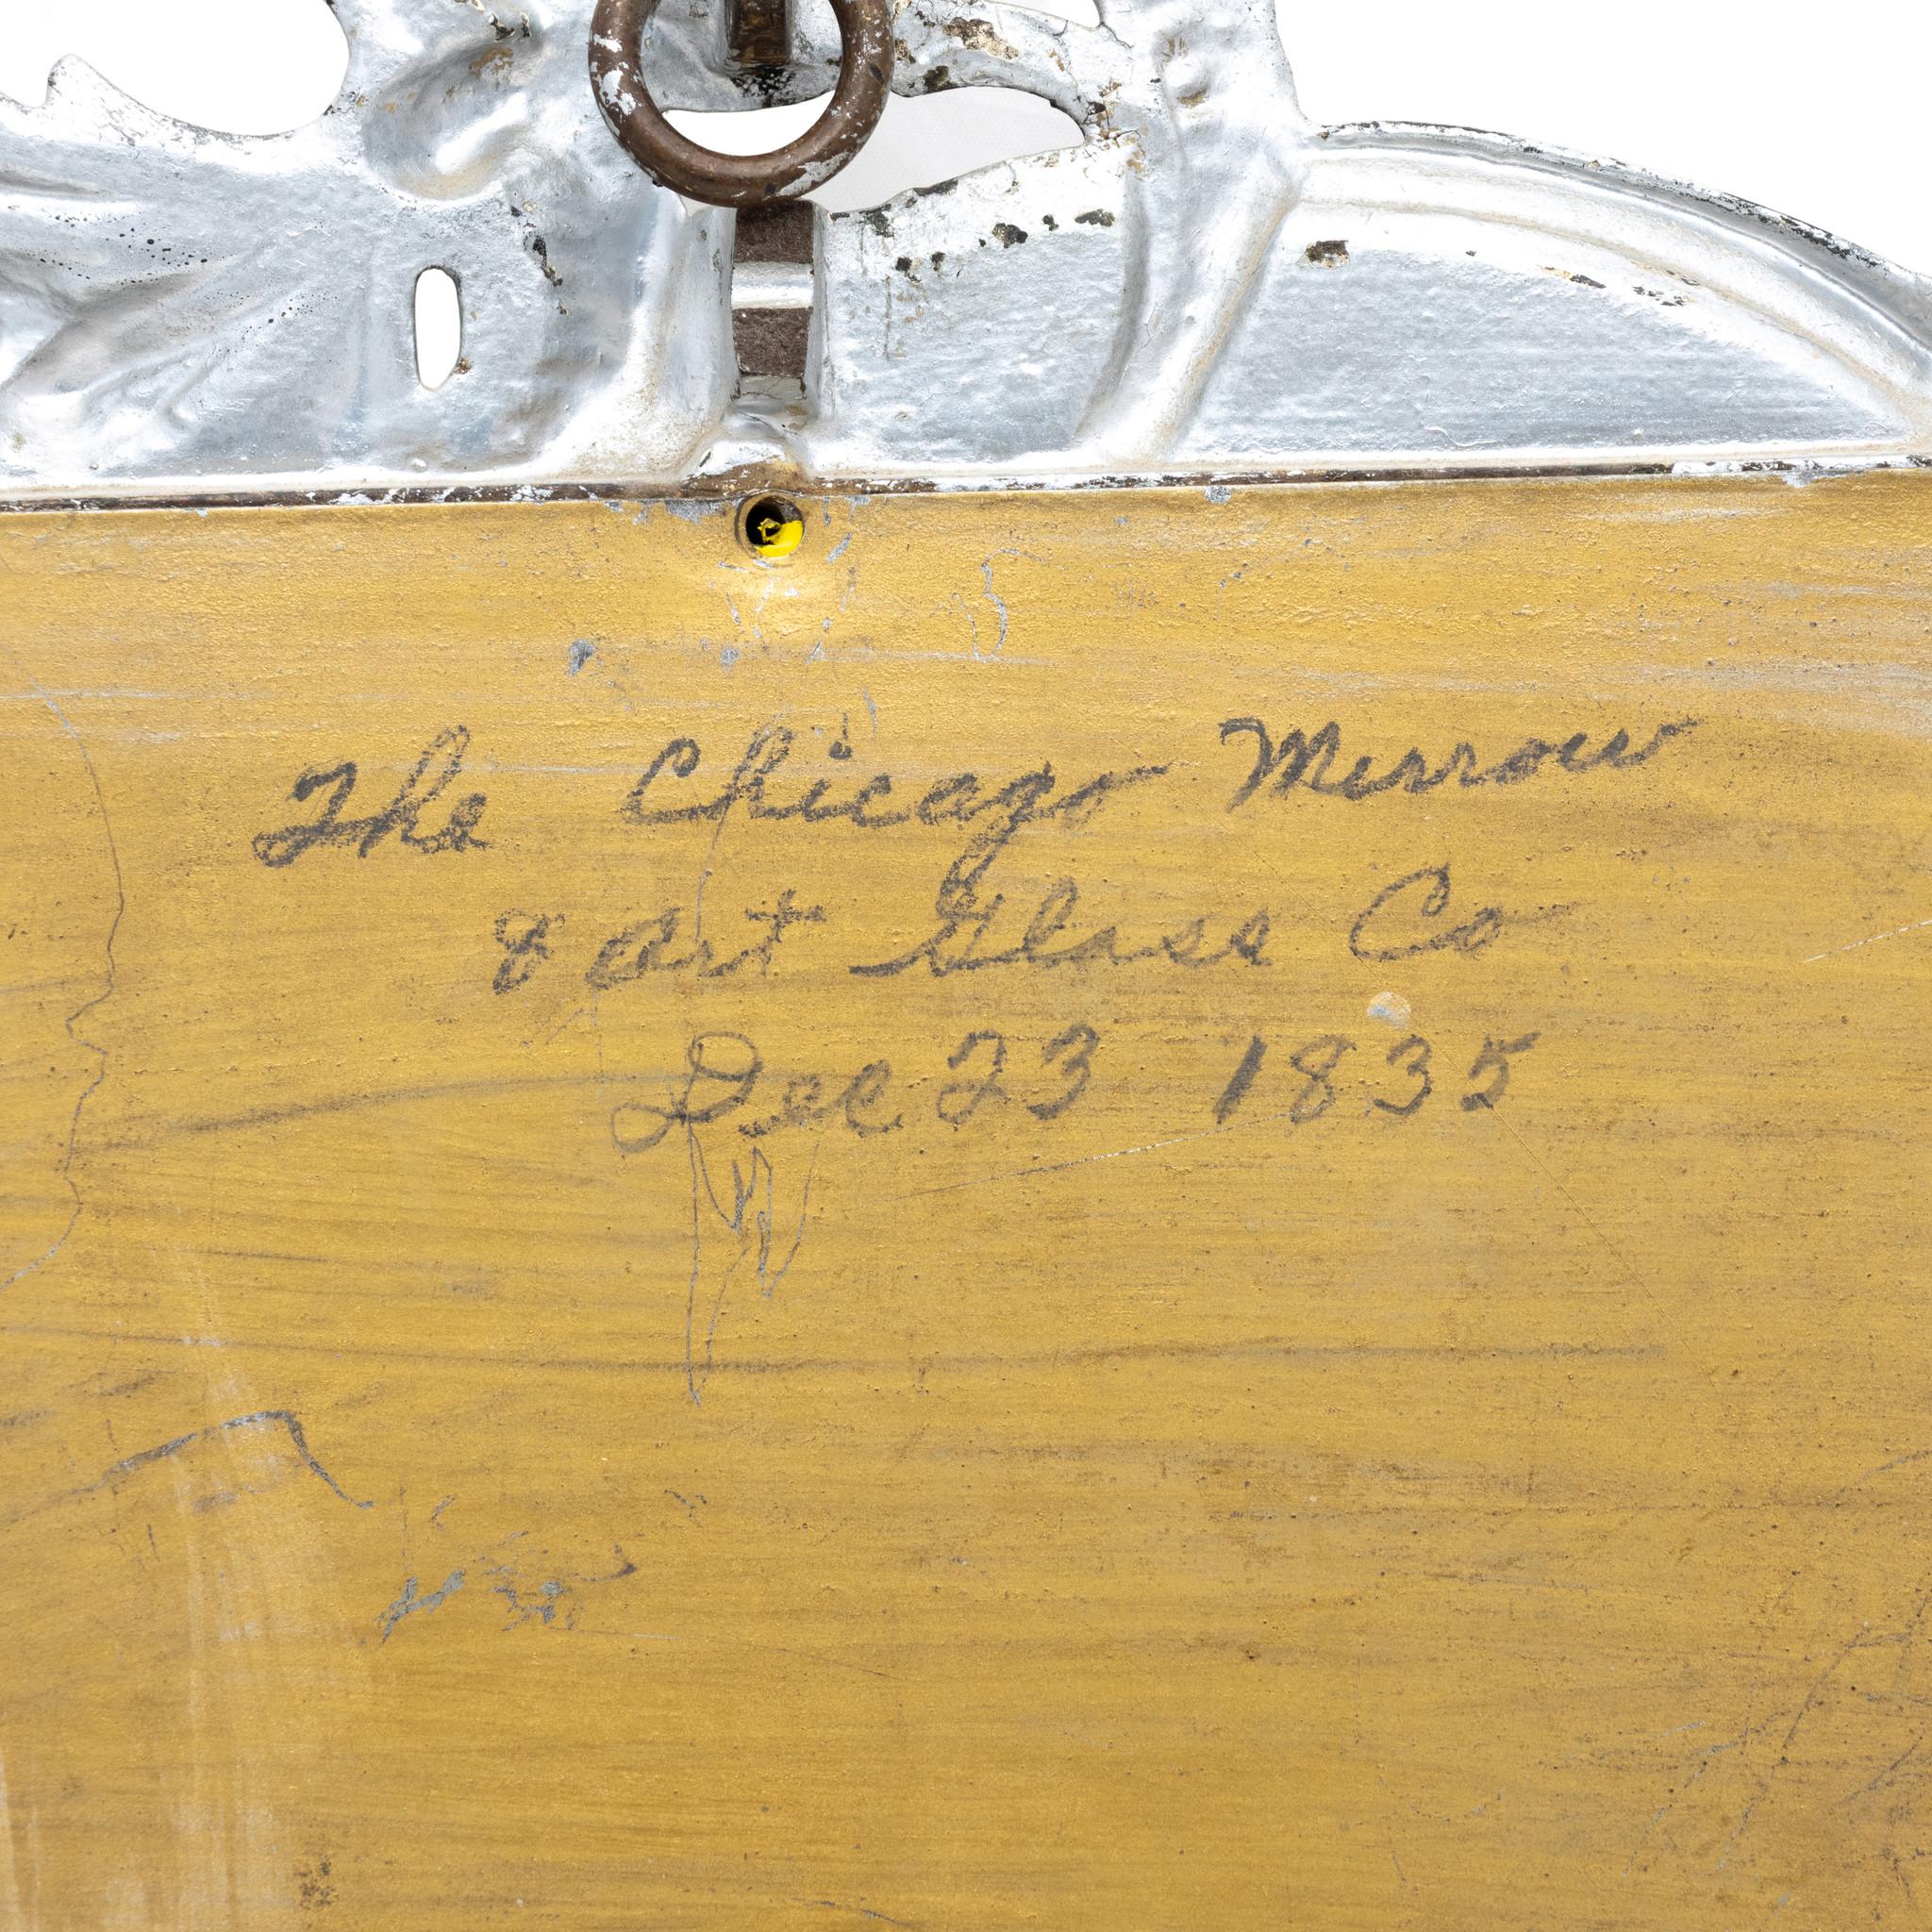 The Chicago Merrow
& Art Glass Co
Dec 23 1835